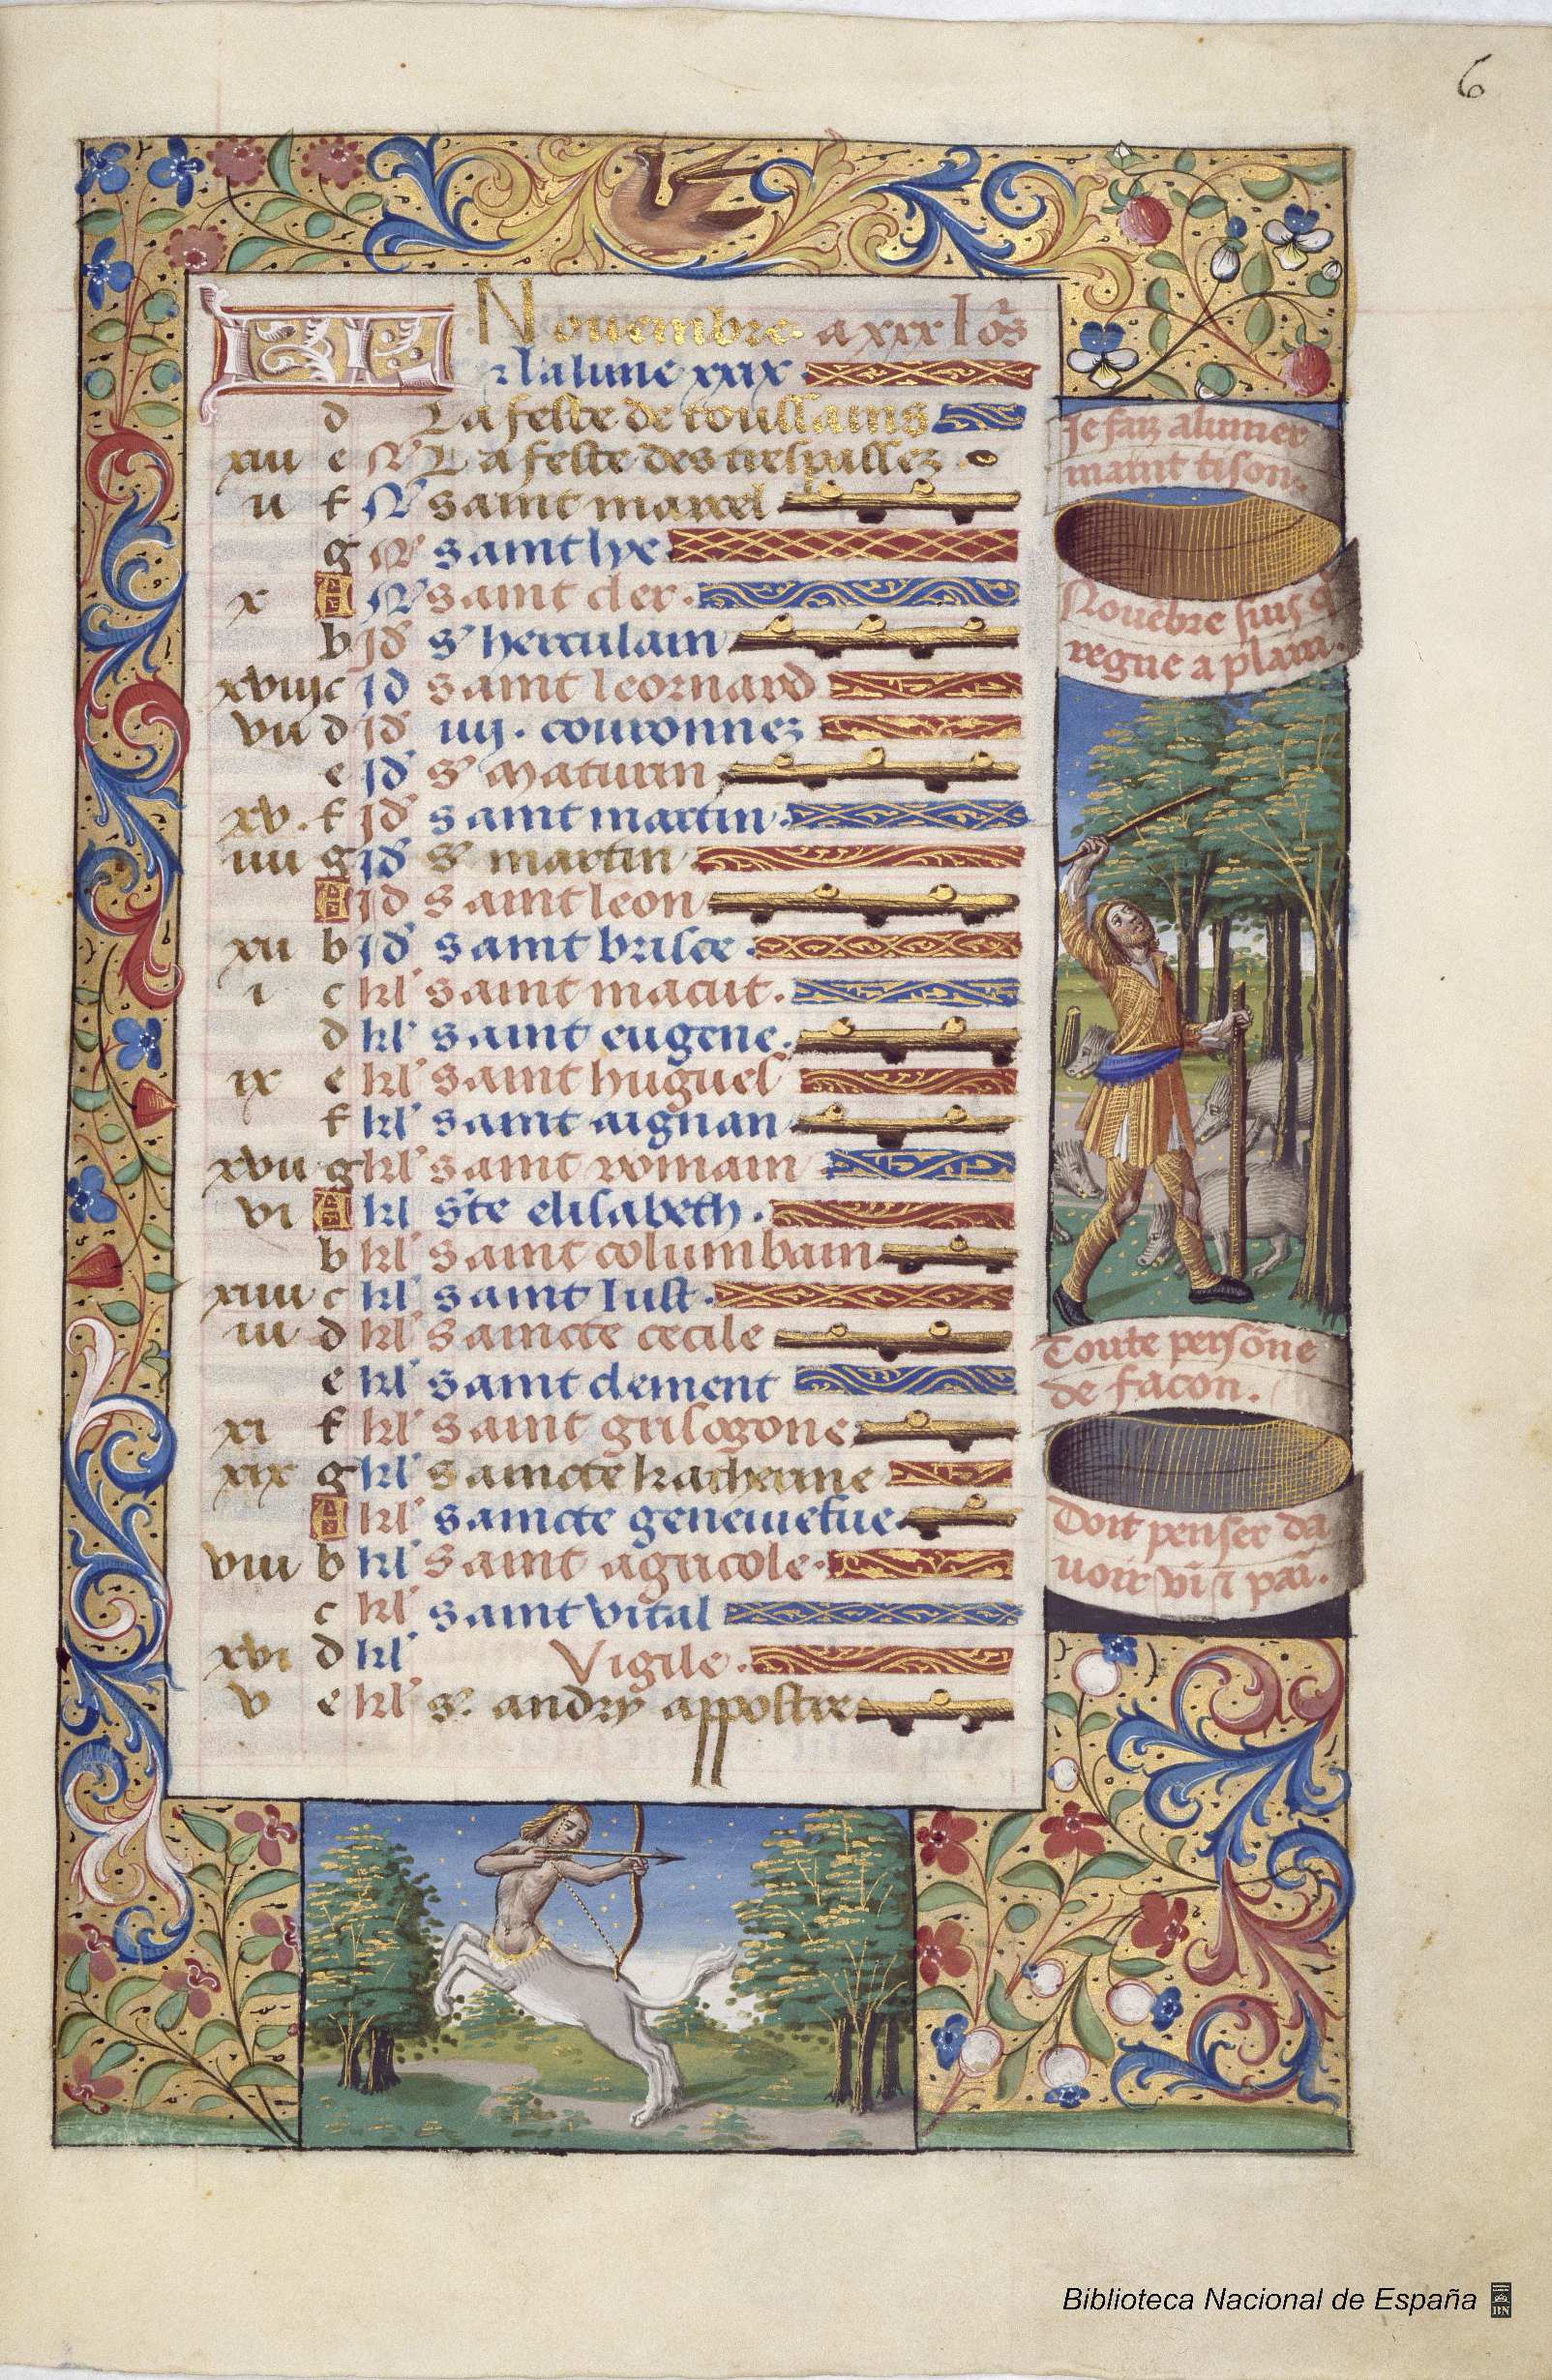 6
KL Nouembre a xxx Iors
et la lune xxix
d La feste de toussains
xiii e N La feste des trespassez
ii f N saint marcel
g N saint lye
x A N saint cler
b Id s' herculain
xviii c Id saint leornard
vii d Id iiij. couronnez
e Id s' maturin
xv. f Id saint martin
iiii g Id s' martin
A Id saint leon
xii b Id saint brisce
i c kl' saint macut
d kl' saint eugene
ix e kl' saint huguet
f kl' saint aignan
xvii g kl' saint romain
vi A kl ste elisabeth
b kl' saint columbain
xiiii c kl' saint Iust
iii d kl' saincte cecile
e kl' saint clement
xi f kl' saint grisogone
xix g kl' saincte katherine
A kl' saincte geneuiefue
viii b kl' saint agricole
c kl' saint vital
xvi d kl' Vigile
v e kl' s. andry appostre
Je faiz alumer
maint tison.
Nouēbre suis q̄
regne a plain.
Toute persōne
de facon.
Doit penser da
uoir vī ⁊ paī.
Biblioteca Nacional de España
BN